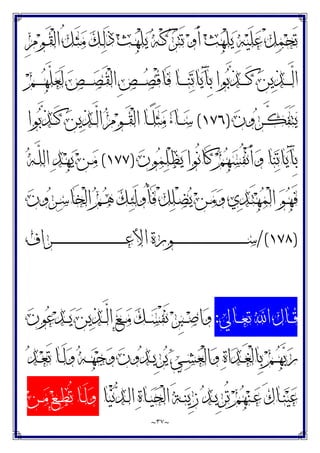 تَحْمِلْ عَلَيْهِ يَلْهَثْ أَوْ تَتْرُكْهُ يَلْهَثْ ذَلِكَ مَثَلُ الْقَوْمِ
الَّذِينَ كَذَّبُوا بِآيَاتِنَا فَاقْصُصِ الْقَصَصَ لَعَلَّهُمْ
يَتَفَكَّرُونَ (١٧٦) سَاءَ مَثَلًا الْقَوْمُ الَّذِينَ كَذَّبُوا
بِآيَاتِنَا وَأَنْفُسَهُمْ كَانُوا يَظْلِمُونَ (١٧٧) مَنْ يَهْدِ اللَّهُ
فَهُوَ الْمُهْتَدِي وَمَنْ يُضْلِلْ فَأُولَئِكَ هُمُ الْخَاسِرُونَ
(١٧٨)/سورة الأعراف
قال اللهُ تعالى: وَاصْبِرْ نَفْسَكَ مَعَ الَّذِينَ يَدْعُونَ
رَبَّهُمْ بِالْغَدَاةِ وَالْعَشِيِّ يُرِيدُونَ وَجْهَهُ وَلَا تَعْدُ
عَيْنَاكَ عَنْهُمْ تُرِيدُ زِينَةَ الْحَيَاةِ الدُّنْيَا وَلَا تُطِعْ مَنْ
~٣٧~